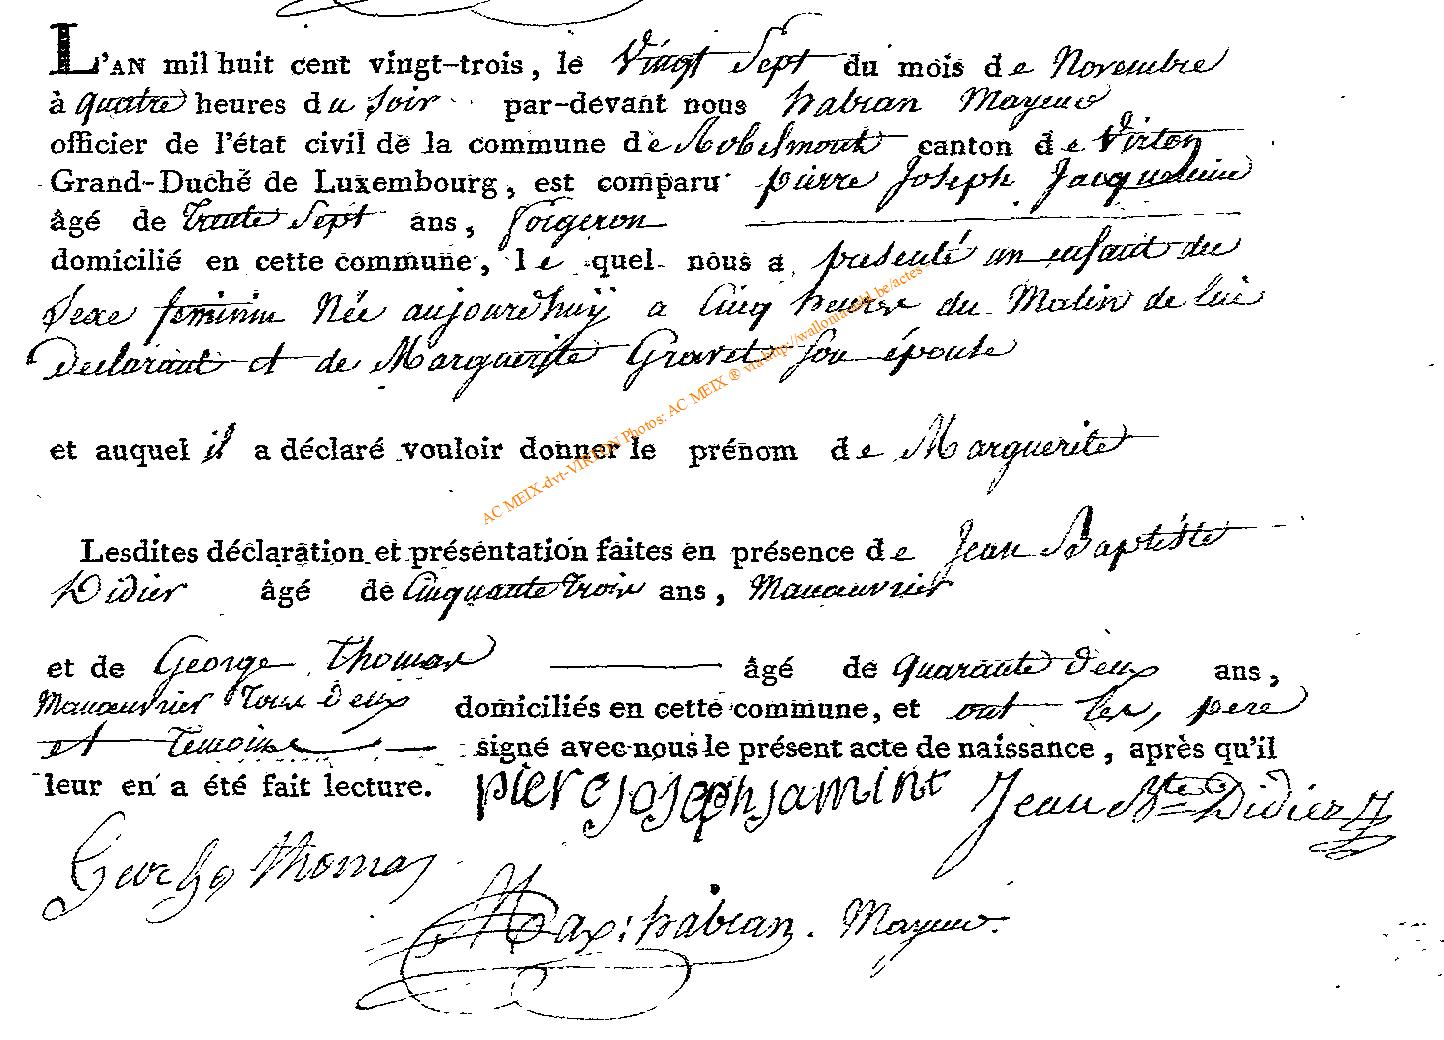 L'AN mil huit cent vingt-trois, le Vingt Sept du mois de Novembre
à quatre heures du Soir par-devant nous habran Mayeur
officier de l'état civil de la commune de Robelmont canton de Virton
Grand-Duché de Luxembourg, est comparu pierre Joseph
âgé de Trente Sept ans, forgeron
domicilié en cette commune, le quel nous a presenté un enfant du
Sexe feminin Née aujourdhuÿ a Cinq heures du Matin de lui
Declarant et de Marguerite Gravet Son épouse
et auquel il a déclaré vouloir donner le prénom de Marguerite
Lesdites déclaration et présentation faites en présence de Jean Baptiste
Didier âgé de Cinquante Trois ans, Manœuvrier
et de George Thomas âgé de quarante deux ans,
Manœuvrier Tous Deux domiciliés en cette commune, et ont les, pere
et Temoins signé avec nous le présent acte de naissance, après qu'il
leur en a été fait lecture. pierejosephjaminet Jean Bte Didier
George thomas
Max: habran. Mayeur.
AC MEIX-dvt-VIRTON Photos: AC MEIX ® via http://wallonia.be/actes